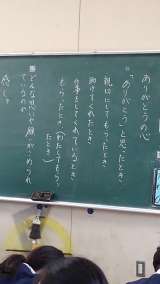 ありがとうの心
"ありがとう"と思ったとき
親切にしてもらったとき
助けてくれたとき
仕事をしてくれているとき
もらったとき(わたしてもらったとき)
どんな思いや願いがこめられているのか
感しゃ